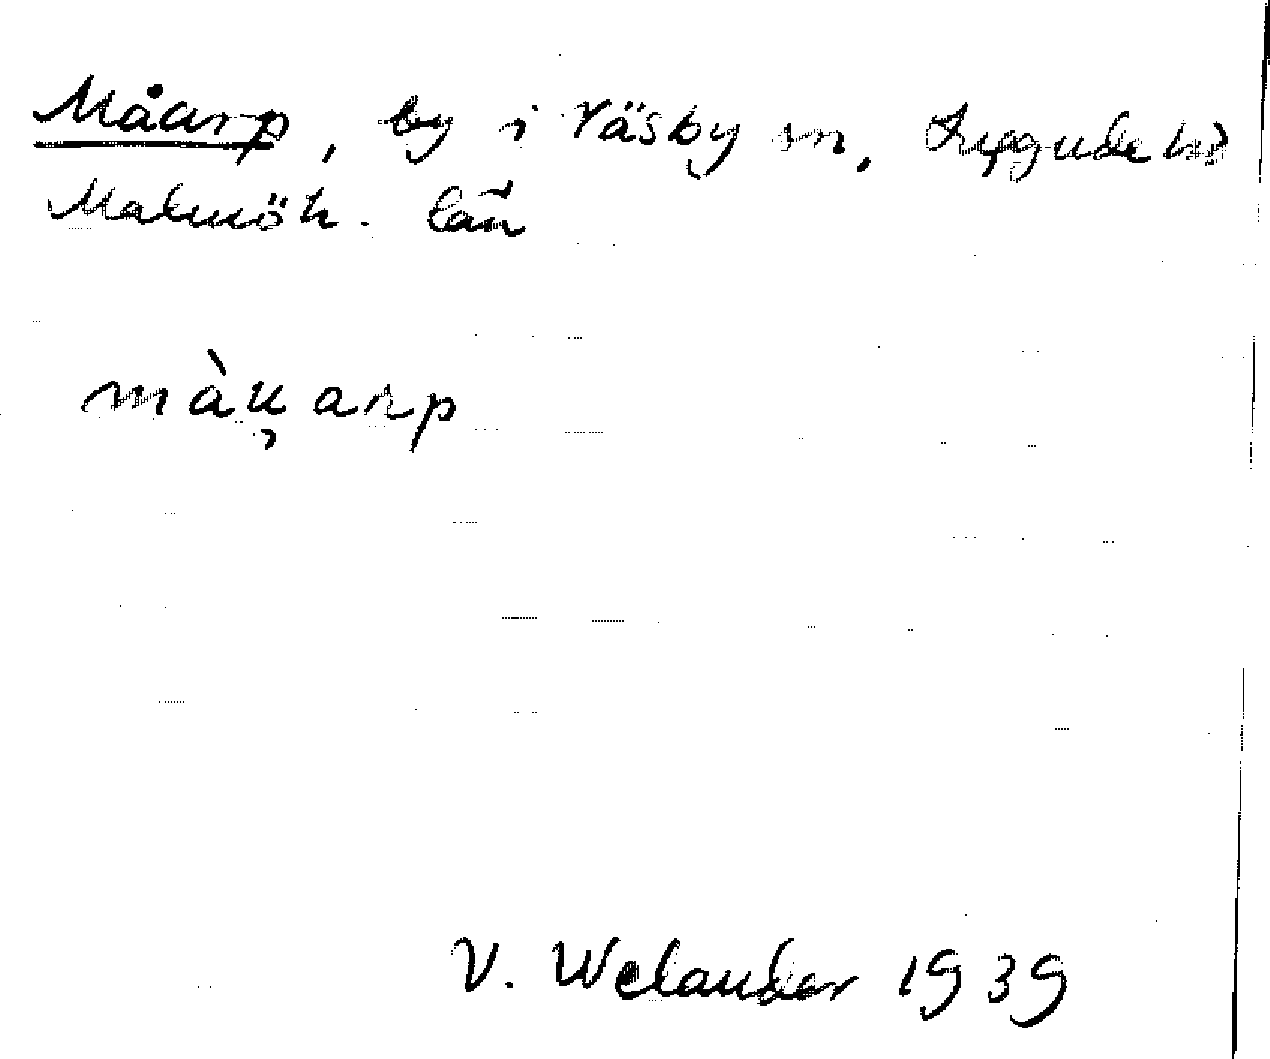 Måarp, by i Väsby sn, Luggude hd
Malmöh. län
màu̡ arp
V. Welander 1939